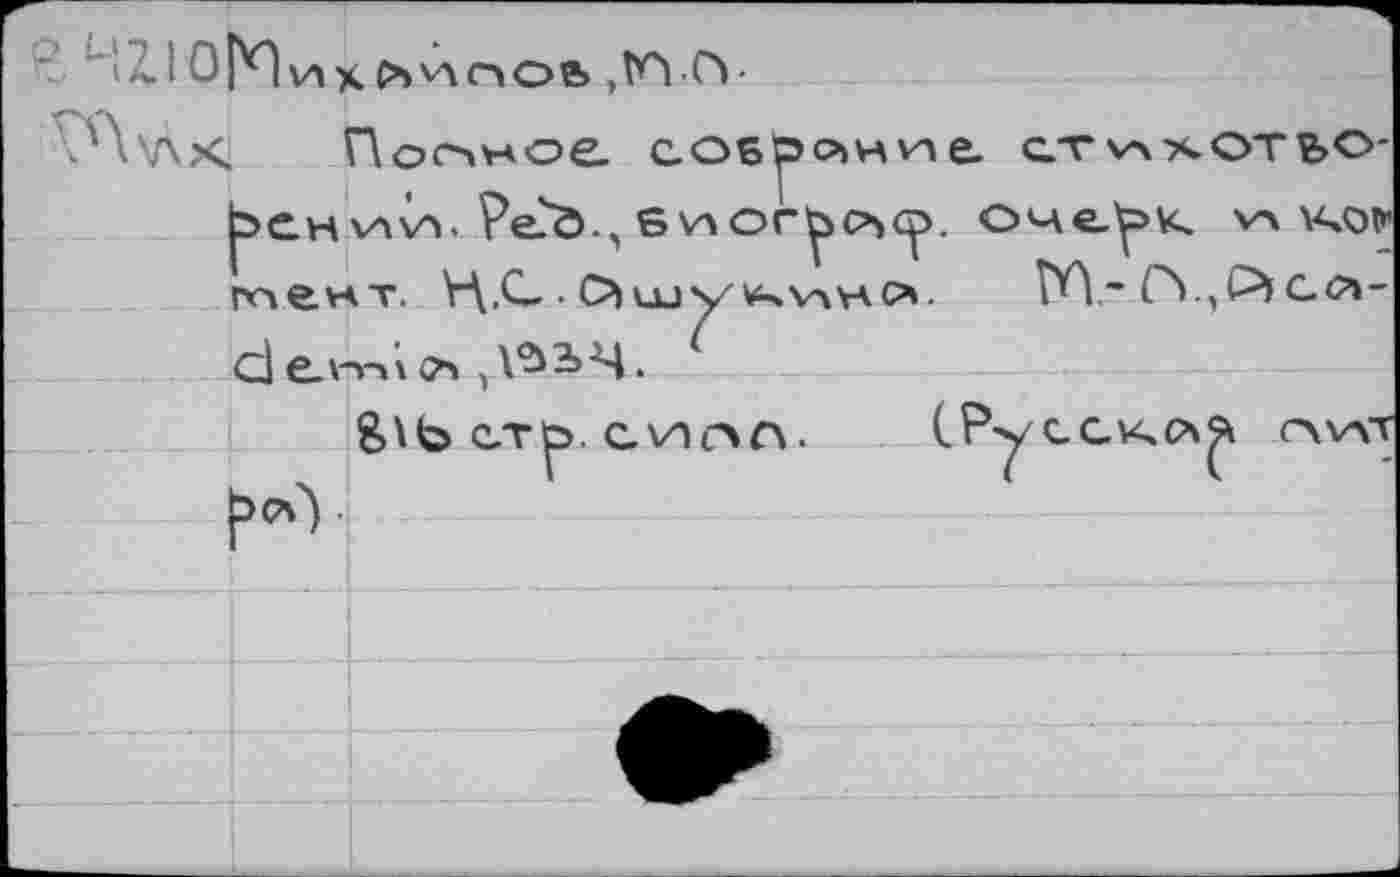 е 4210 Михайлов, М.Л.
Мих Полное собрание стихотво-
рений. Ред., биограф. очерк и ком
мент. Н.С. Ашукина. М.-Л., Aca-
demia, 1934.
816 стр. с илл. (Русская лит
ра).